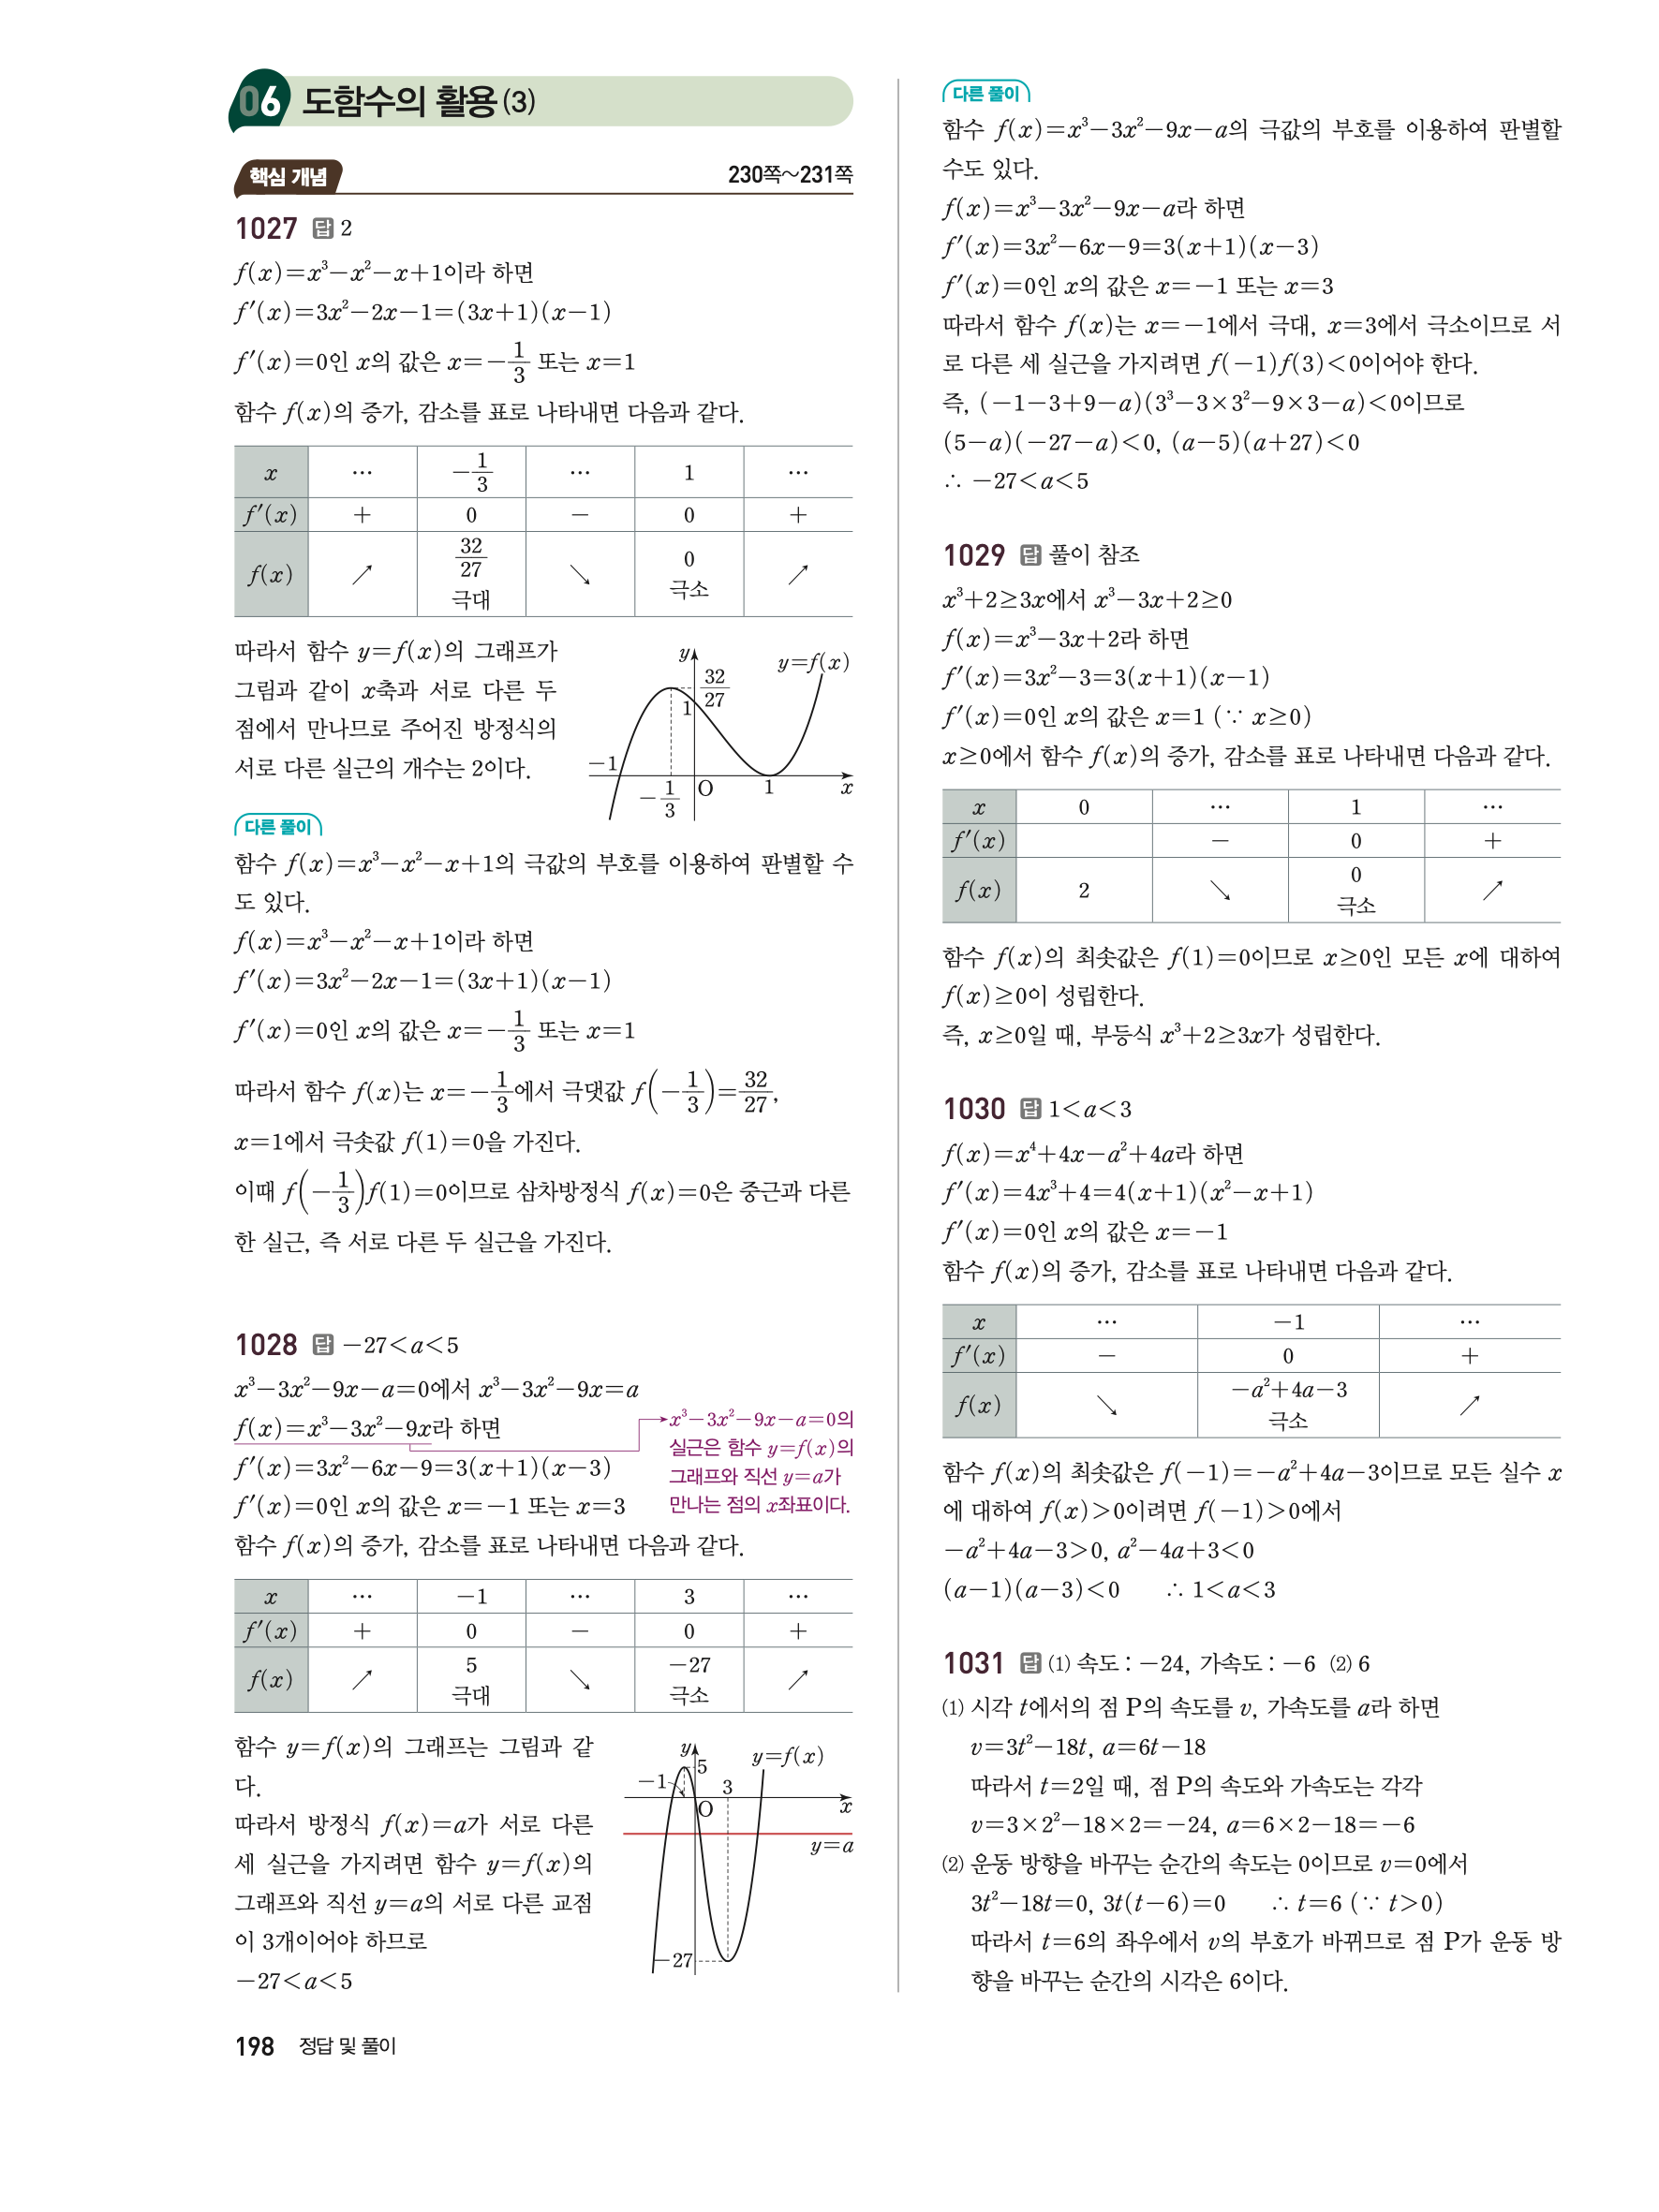 06 도함수의 활용 (3)
핵심 개념 230쪽~231쪽
1027 답 2
f(x)=x³-x²-x+1이라 하면
f'(x)=3x²-2x-1=(3x+1)(x-1)
f'(x)=0인 x의 값은 x=-1/3 또는 x=1
함수 f(x)의 증가, 감소를 표로 나타내면 다음과 같다.
x … -1/3 … 1 …
f'(x) + 0 - 0 +
f(x) ↗ 32/27 극대 ↘ 0 극소 ↗
따라서 함수 y=f(x)의 그래프가
그림과 같이 x축과 서로 다른 두
점에서 만나므로 주어진 방정식의
서로 다른 실근의 개수는 2이다.
y
32/27
y=f(x)
1
-1
-1/3
O
1
x
다른 풀이
함수 f(x)=x³-x²-x+1의 극값의 부호를 이용하여 판별할 수
도 있다.
f(x)=x³-x²-x+1이라 하면
f'(x)=3x²-2x-1=(3x+1)(x-1)
f'(x)=0인 x의 값은 x=-1/3 또는 x=1
따라서 함수 f(x)는 x=-1/3에서 극댓값 f(-1/3)=32/27,
x=1에서 극솟값 f(1)=0을 가진다.
이때 f(-1/3)f(1)=0이므로 삼차방정식 f(x)=0은 중근과 다른
한 실근, 즉 서로 다른 두 실근을 가진다.
1028 답 -27<a<5
x³-3x²-9x-a=0에서 x³-3x²-9x=a
f(x)=x³-3x²-9x라 하면
f'(x)=3x²-6x-9=3(x+1)(x-3)
f'(x)=0인 x의 값은 x=-1 또는 x=3
x³-3x²-9x-a=0의
실근은 함수 y=f(x)의
그래프와 직선 y=a가
만나는 점의 x좌표이다.
함수 f(x)의 증가, 감소를 표로 나타내면 다음과 같다.
x … -1 … 3 …
f'(x) + 0 - 0 +
f(x) ↗ 5 극대 ↘ -27 극소 ↗
함수 y=f(x)의 그래프는 그림과 같
다.
따라서 방정식 f(x)=a가 서로 다른
세 실근을 가지려면 함수 y=f(x)의
그래프와 직선 y=a의 서로 다른 교점
이 3개이어야 하므로
-27<a<5
y
5
y=f(x)
-1
3
O
x
y=a
-27
198 정답 및 풀이
다른 풀이
함수 f(x)=x³-3x²-9x-a의 극값의 부호를 이용하여 판별할
수도 있다.
f(x)=x³-3x²-9x-a라 하면
f'(x)=3x²-6x-9=3(x+1)(x-3)
f'(x)=0인 x의 값은 x=-1 또는 x=3
따라서 함수 f(x)는 x=-1에서 극대, x=3에서 극소이므로 서
로 다른 세 실근을 가지려면 f(-1)f(3)<0이어야 한다.
즉, (-1-3+9-a)(3³-3×3²-9×3-a)<0이므로
(5-a)(-27-a)<0, (a-5)(a+27)<0
∴ -27<a<5
1029 답 풀이 참조
x³+2≥3x에서 x³-3x+2≥0
f(x)=x³-3x+2라 하면
f'(x)=3x²-3=3(x+1)(x-1)
f'(x)=0인 x의 값은 x=1 (∵ x≥0)
x≥0에서 함수 f(x)의 증가, 감소를 표로 나타내면 다음과 같다.
x 0 … 1 …
f'(x) - 0 +
f(x) 2 ↘ 0 극소 ↗
함수 f(x)의 최솟값은 f(1)=0이므로 x≥0인 모든 x에 대하여
f(x)≥0이 성립한다.
즉, x≥0일 때, 부등식 x³+2≥3x가 성립한다.
1030 답 1<a<3
f(x)=x⁴+4x-a²+4a라 하면
f'(x)=4x³+4=4(x+1)(x²-x+1)
f'(x)=0인 x의 값은 x=-1
함수 f(x)의 증가, 감소를 표로 나타내면 다음과 같다.
x … -1 …
f'(x) - 0 +
f(x) ↘ -a²+4a-3 극소 ↗
함수 f(x)의 최솟값은 f(-1)=-a²+4a-3이므로 모든 실수 x
에 대하여 f(x)>0이려면 f(-1)>0에서
-a²+4a-3>0, a²-4a+3<0
(a-1)(a-3)<0 ∴ 1<a<3
1031 답 (1) 속도 : -24, 가속도 : -6 (2) 6
(1) 시각 t에서의 점 P의 속도를 v, 가속도를 a라 하면
v=3t²-18t, a=6t-18
따라서 t=2일 때, 점 P의 속도와 가속도는 각각
v=3×2²-18×2=-24, a=6×2-18=-6
(2) 운동 방향을 바꾸는 순간의 속도는 0이므로 v=0에서
3t²-18t=0, 3t(t-6)=0 ∴ t=6 (∵ t>0)
따라서 t=6의 좌우에서 v의 부호가 바뀌므로 점 P가 운동 방
향을 바꾸는 순간의 시각은 6이다.